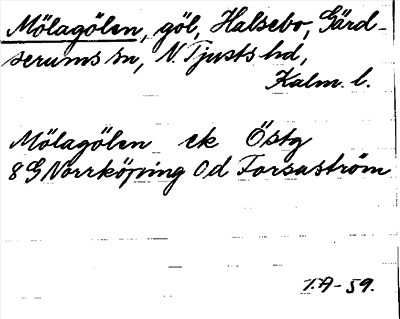 Mölagölen, göl, Halsebo, Gärd-
serums sn, N. Tjusts hd,
Kalm. l.
Mölagölen ek Östg
8G Norrköping 0d Forsaström
T.A-59.